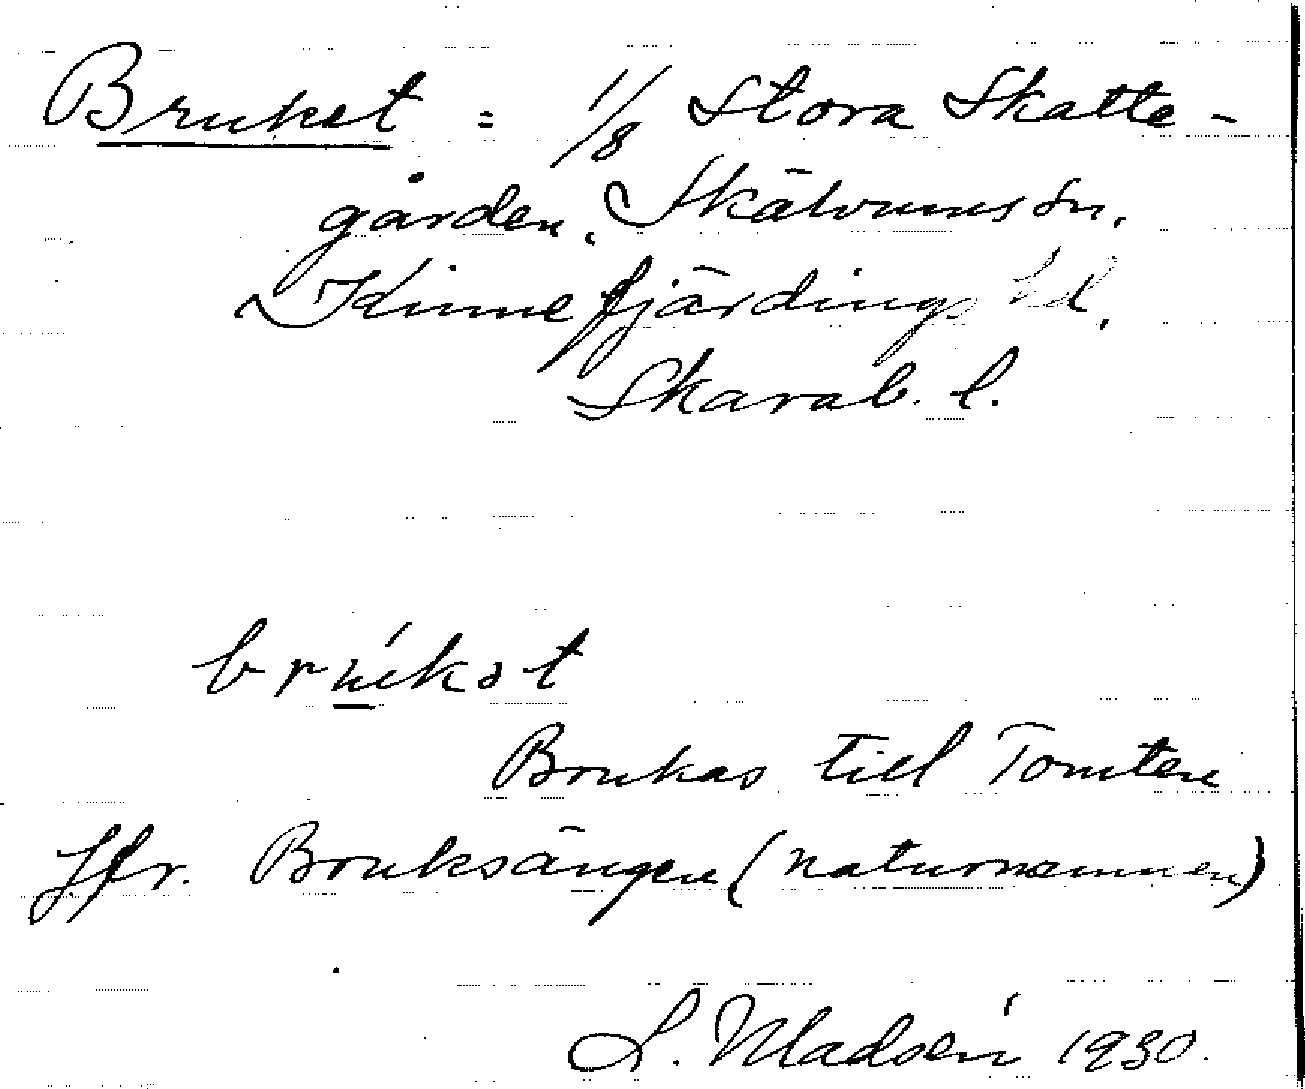 Bruket = 1/8 Stora Skatte-
gården, Skälvums sn,
Kinnefjärdings hd,
Skarab. l.
brúkat
Brukas till Tomten
Jfr. Bruksängen (naturnamnen)
L. Madsén 1930.